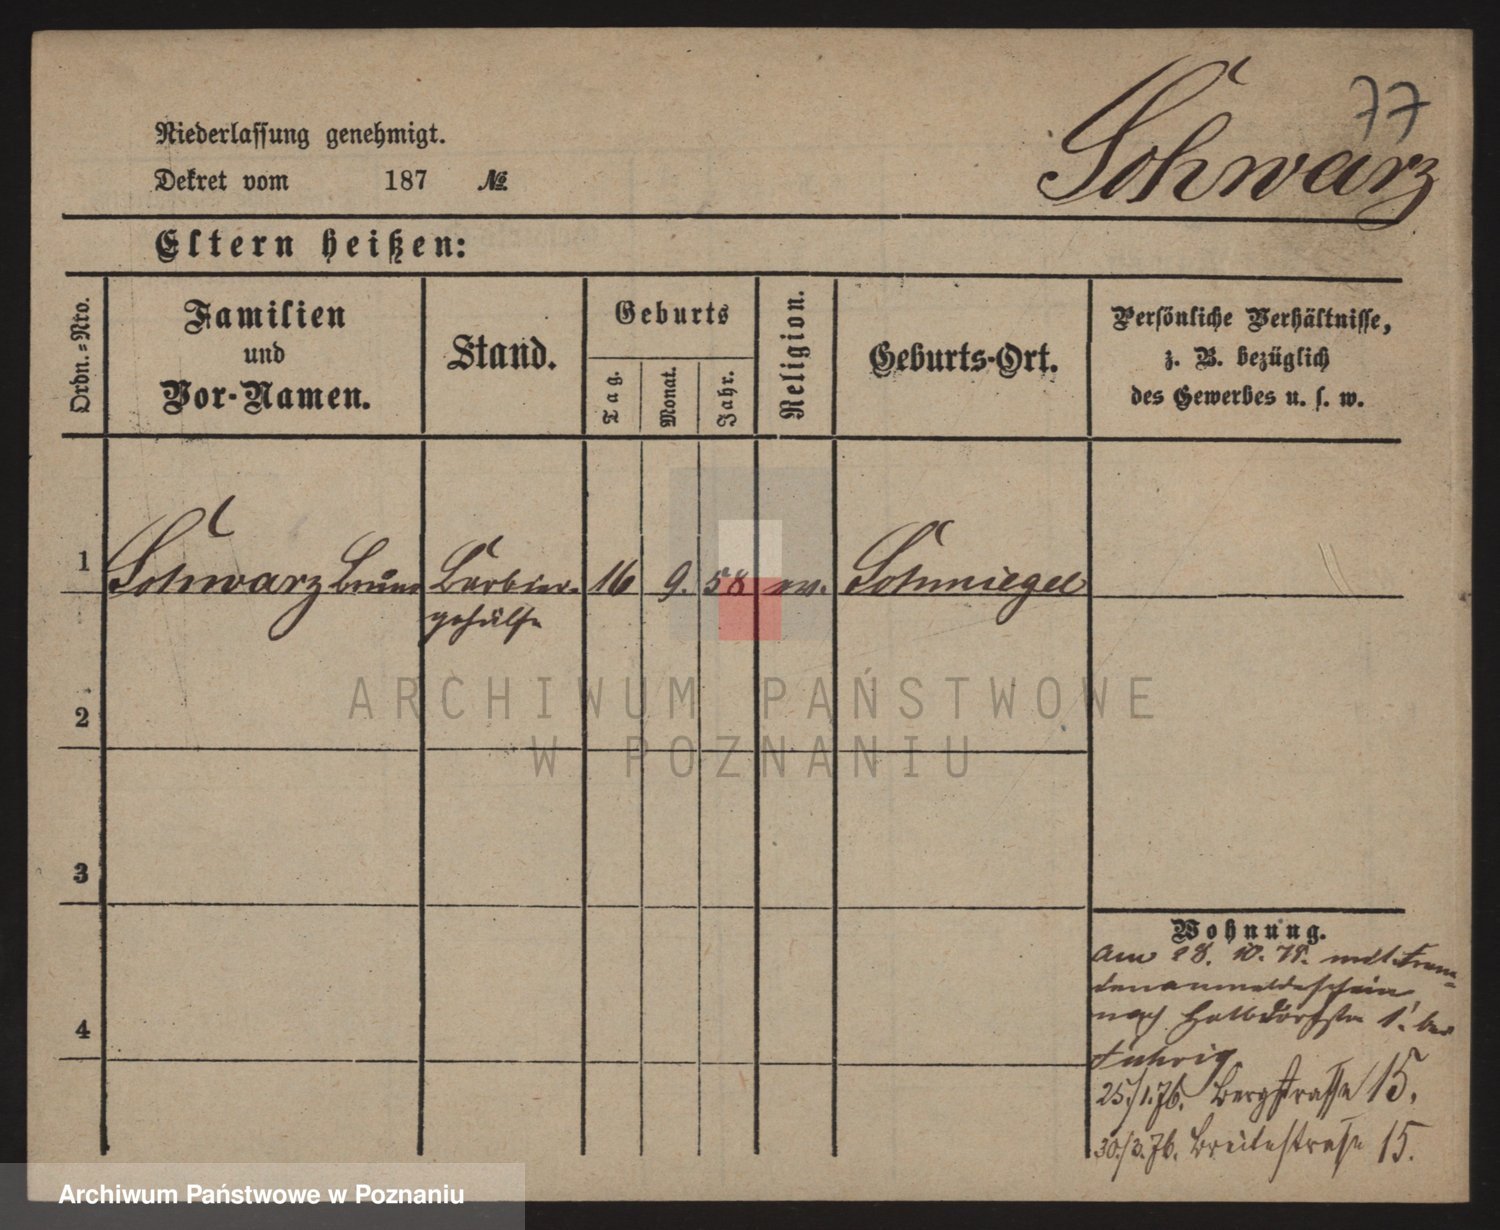 77
Schwarz
Niederlassung genehmigt.
Dekret vom 187 №
Eltern heißen:
Ordn.-Nro.
Familien
und
Vor-Namen.
Stand.
Geburts
Tag.
Monat.
Jahr.
Religion.
Geburts-Ort.
Persönliche Verhältnisse,
z. B. bezüglich
des Gewerbes u. s. w.
1 Schwarz Bruno Barbier- 16 9. 58 ev. Schmiegel
gehülfe
2
3
4
Wohnung.
Am 28. 10. 75. mit Frem-
denanmeldeschein
nach Halbdorfstr 1. bei
25./1.76. Bergstrasse 15.
30./3.76. Breitestrasse 15.
ARCHIWUM PAŃSTWOWE
W POZNANIU
Archiwum Państwowe w Poznaniu